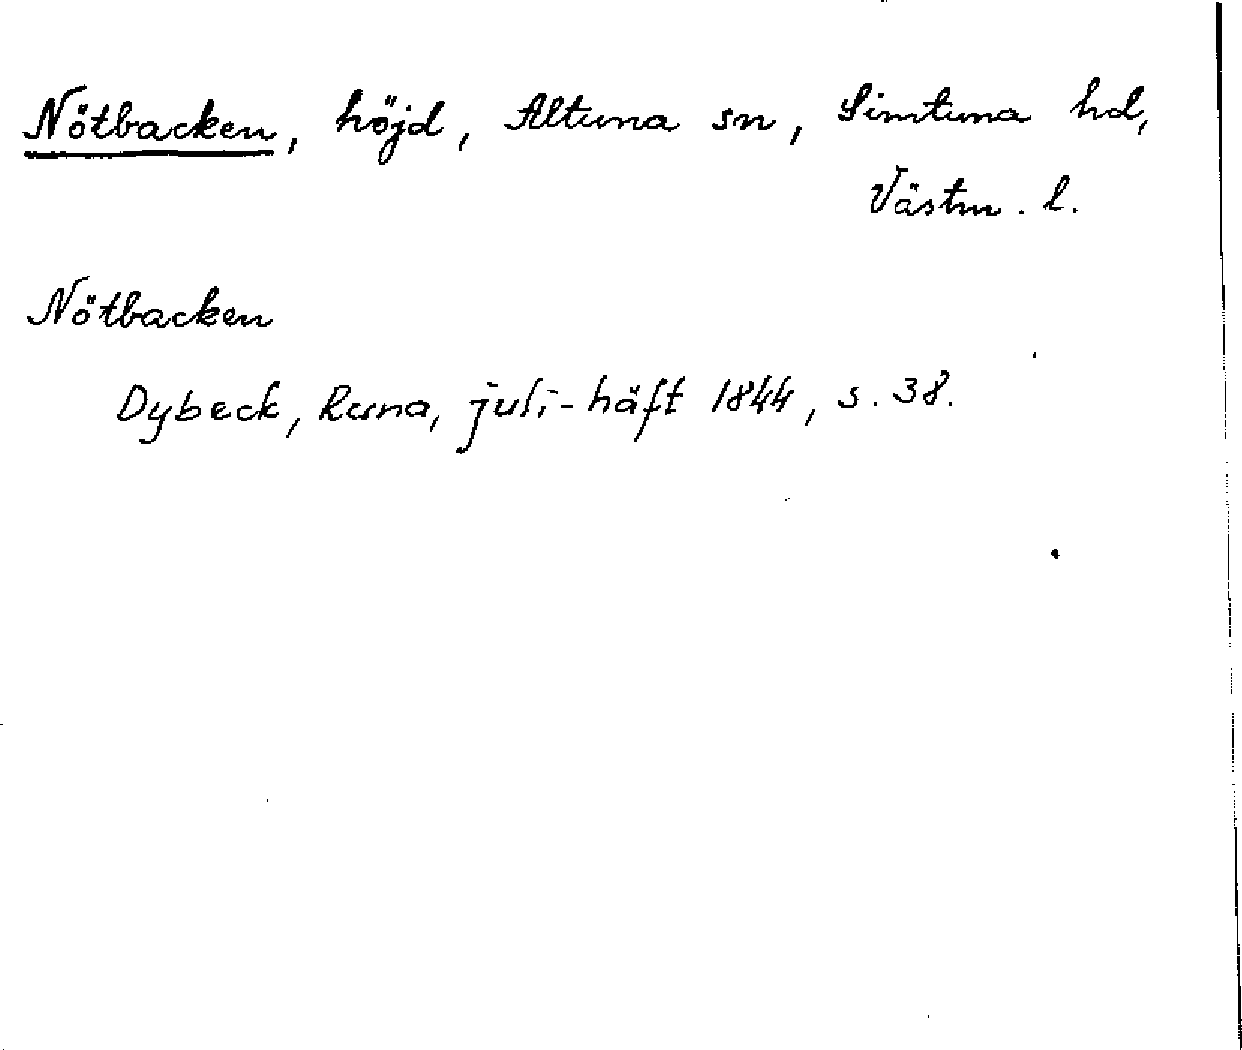 Nötbacken, höjd, Altuna sn, Simtuna hd,
Västm. l.
Nötbacken
Dybeck, Runa, juli-häft 1844, s. 38.